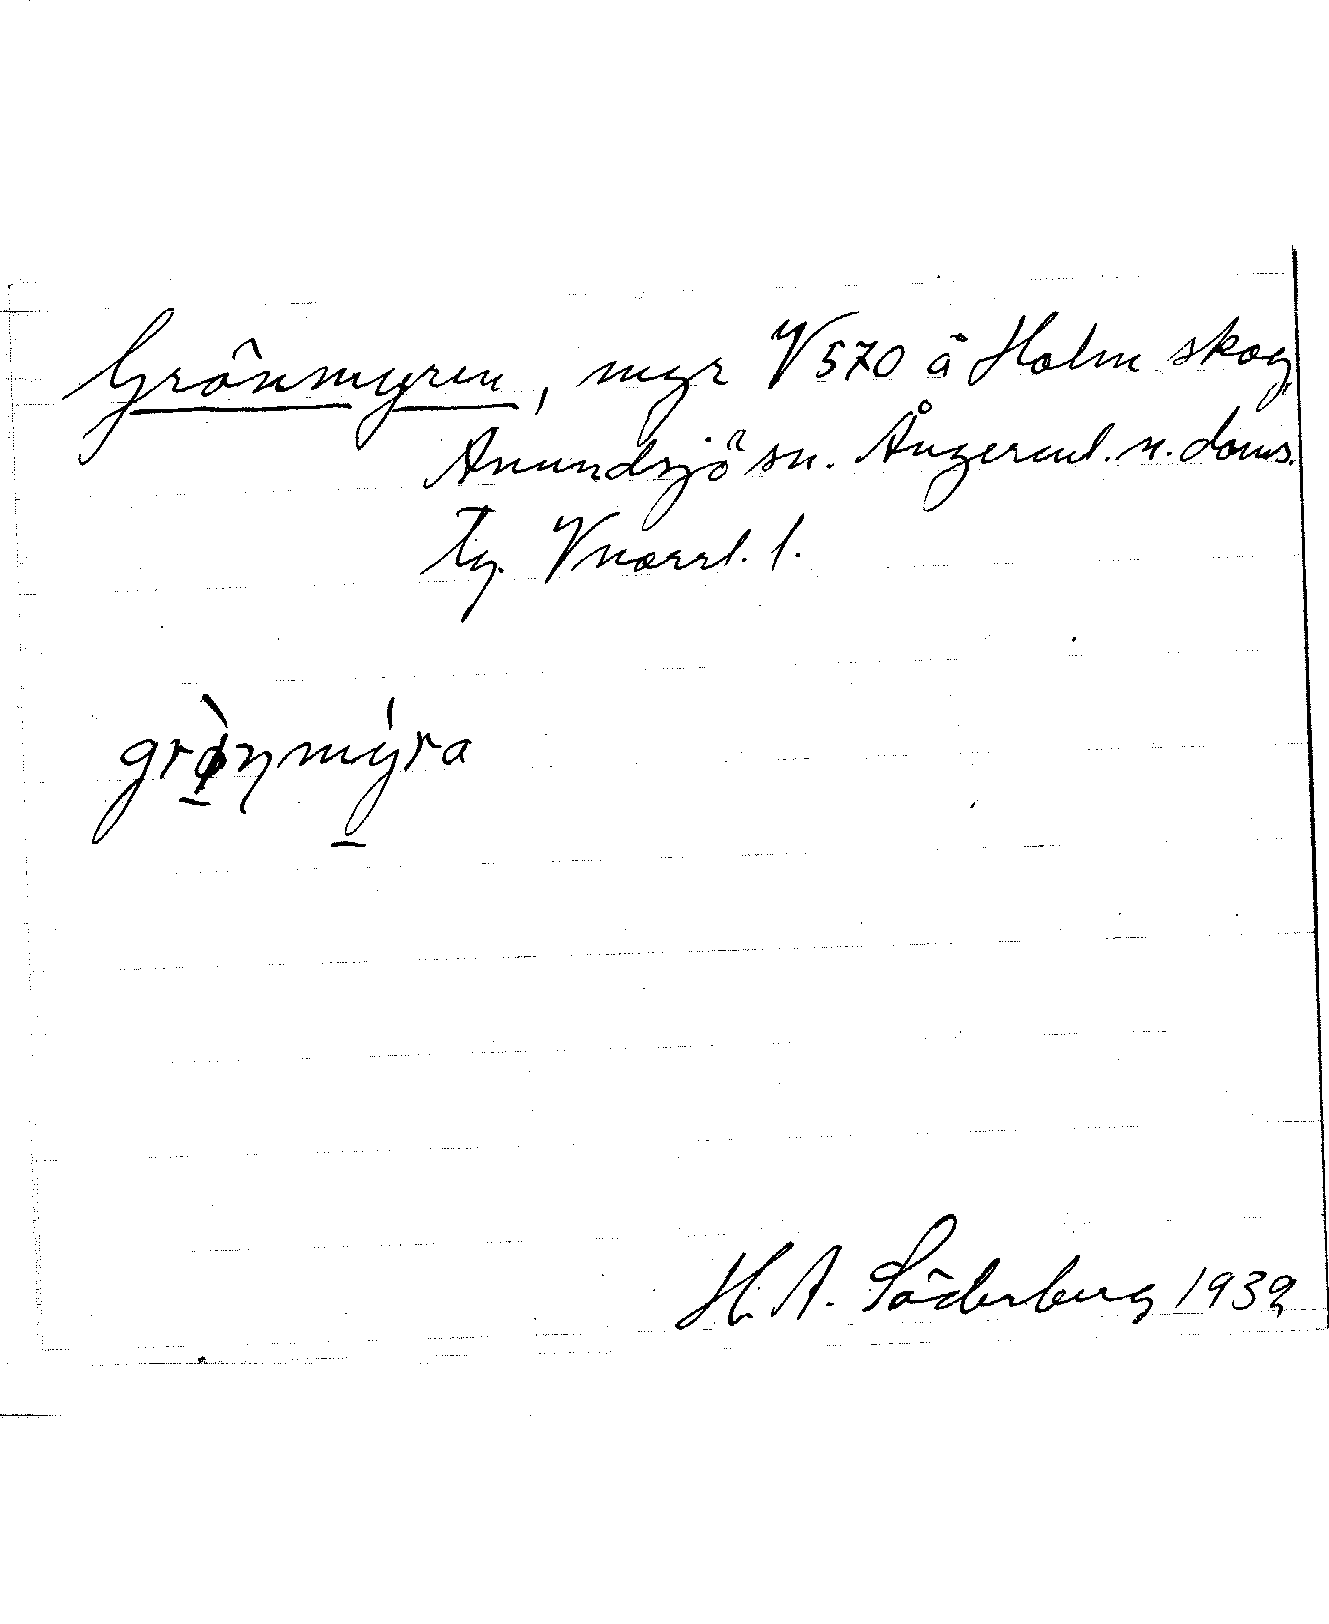 Grönmyren, myr V570 å Holm skog
Anundsjö sn. Ångerml. n. doms.
Tg. Vnorrl. l.
grø̀nmýra
H. A. Söderberg 1939